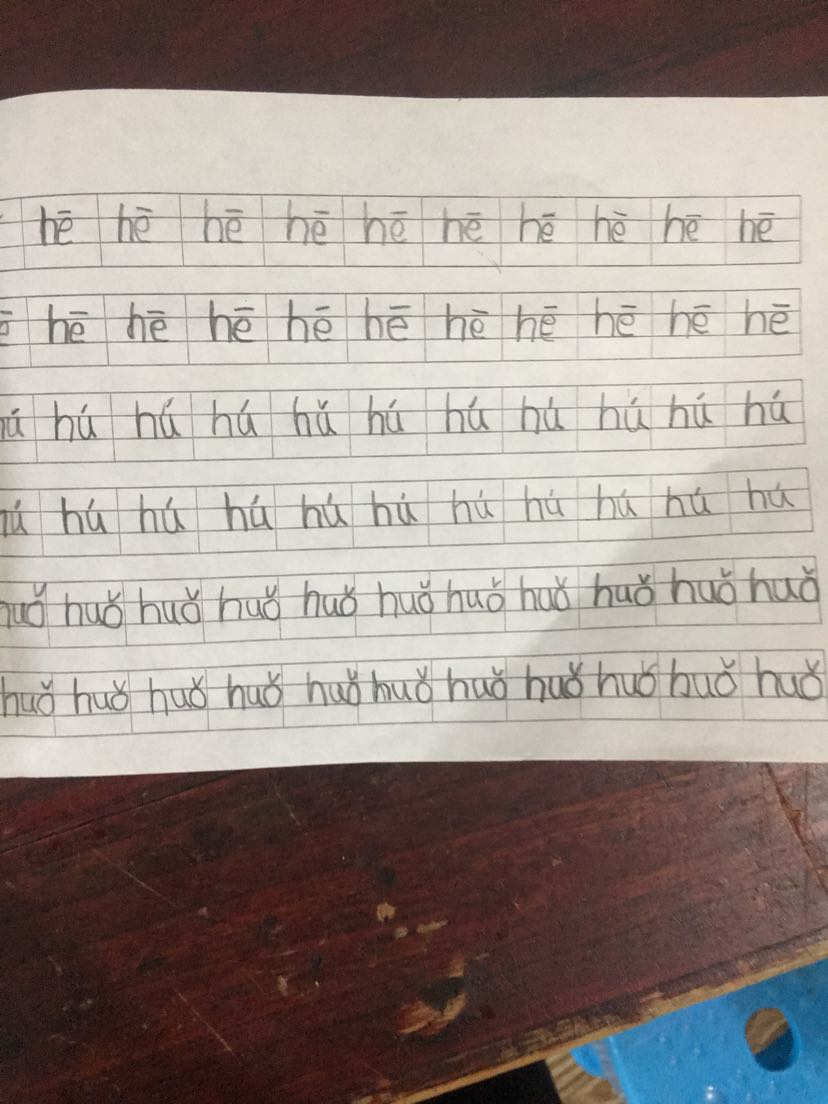 hē hē hē hē hē hē hē hè hē hē
hē hē hē hē hē hē hē hē hē hē
hú hú hú hŭ hú hú hú hú hú hú
hú hú hú hú hú hú hú hú hú hú
huǒ huǒ huǒ huǒ huǒ huǒ huǒ huǒ huǒ huǒ huǒ
huǒ huǒ huǒ huǒ huǒ huǒ huǒ huǒ huǒ huǒ huǒ